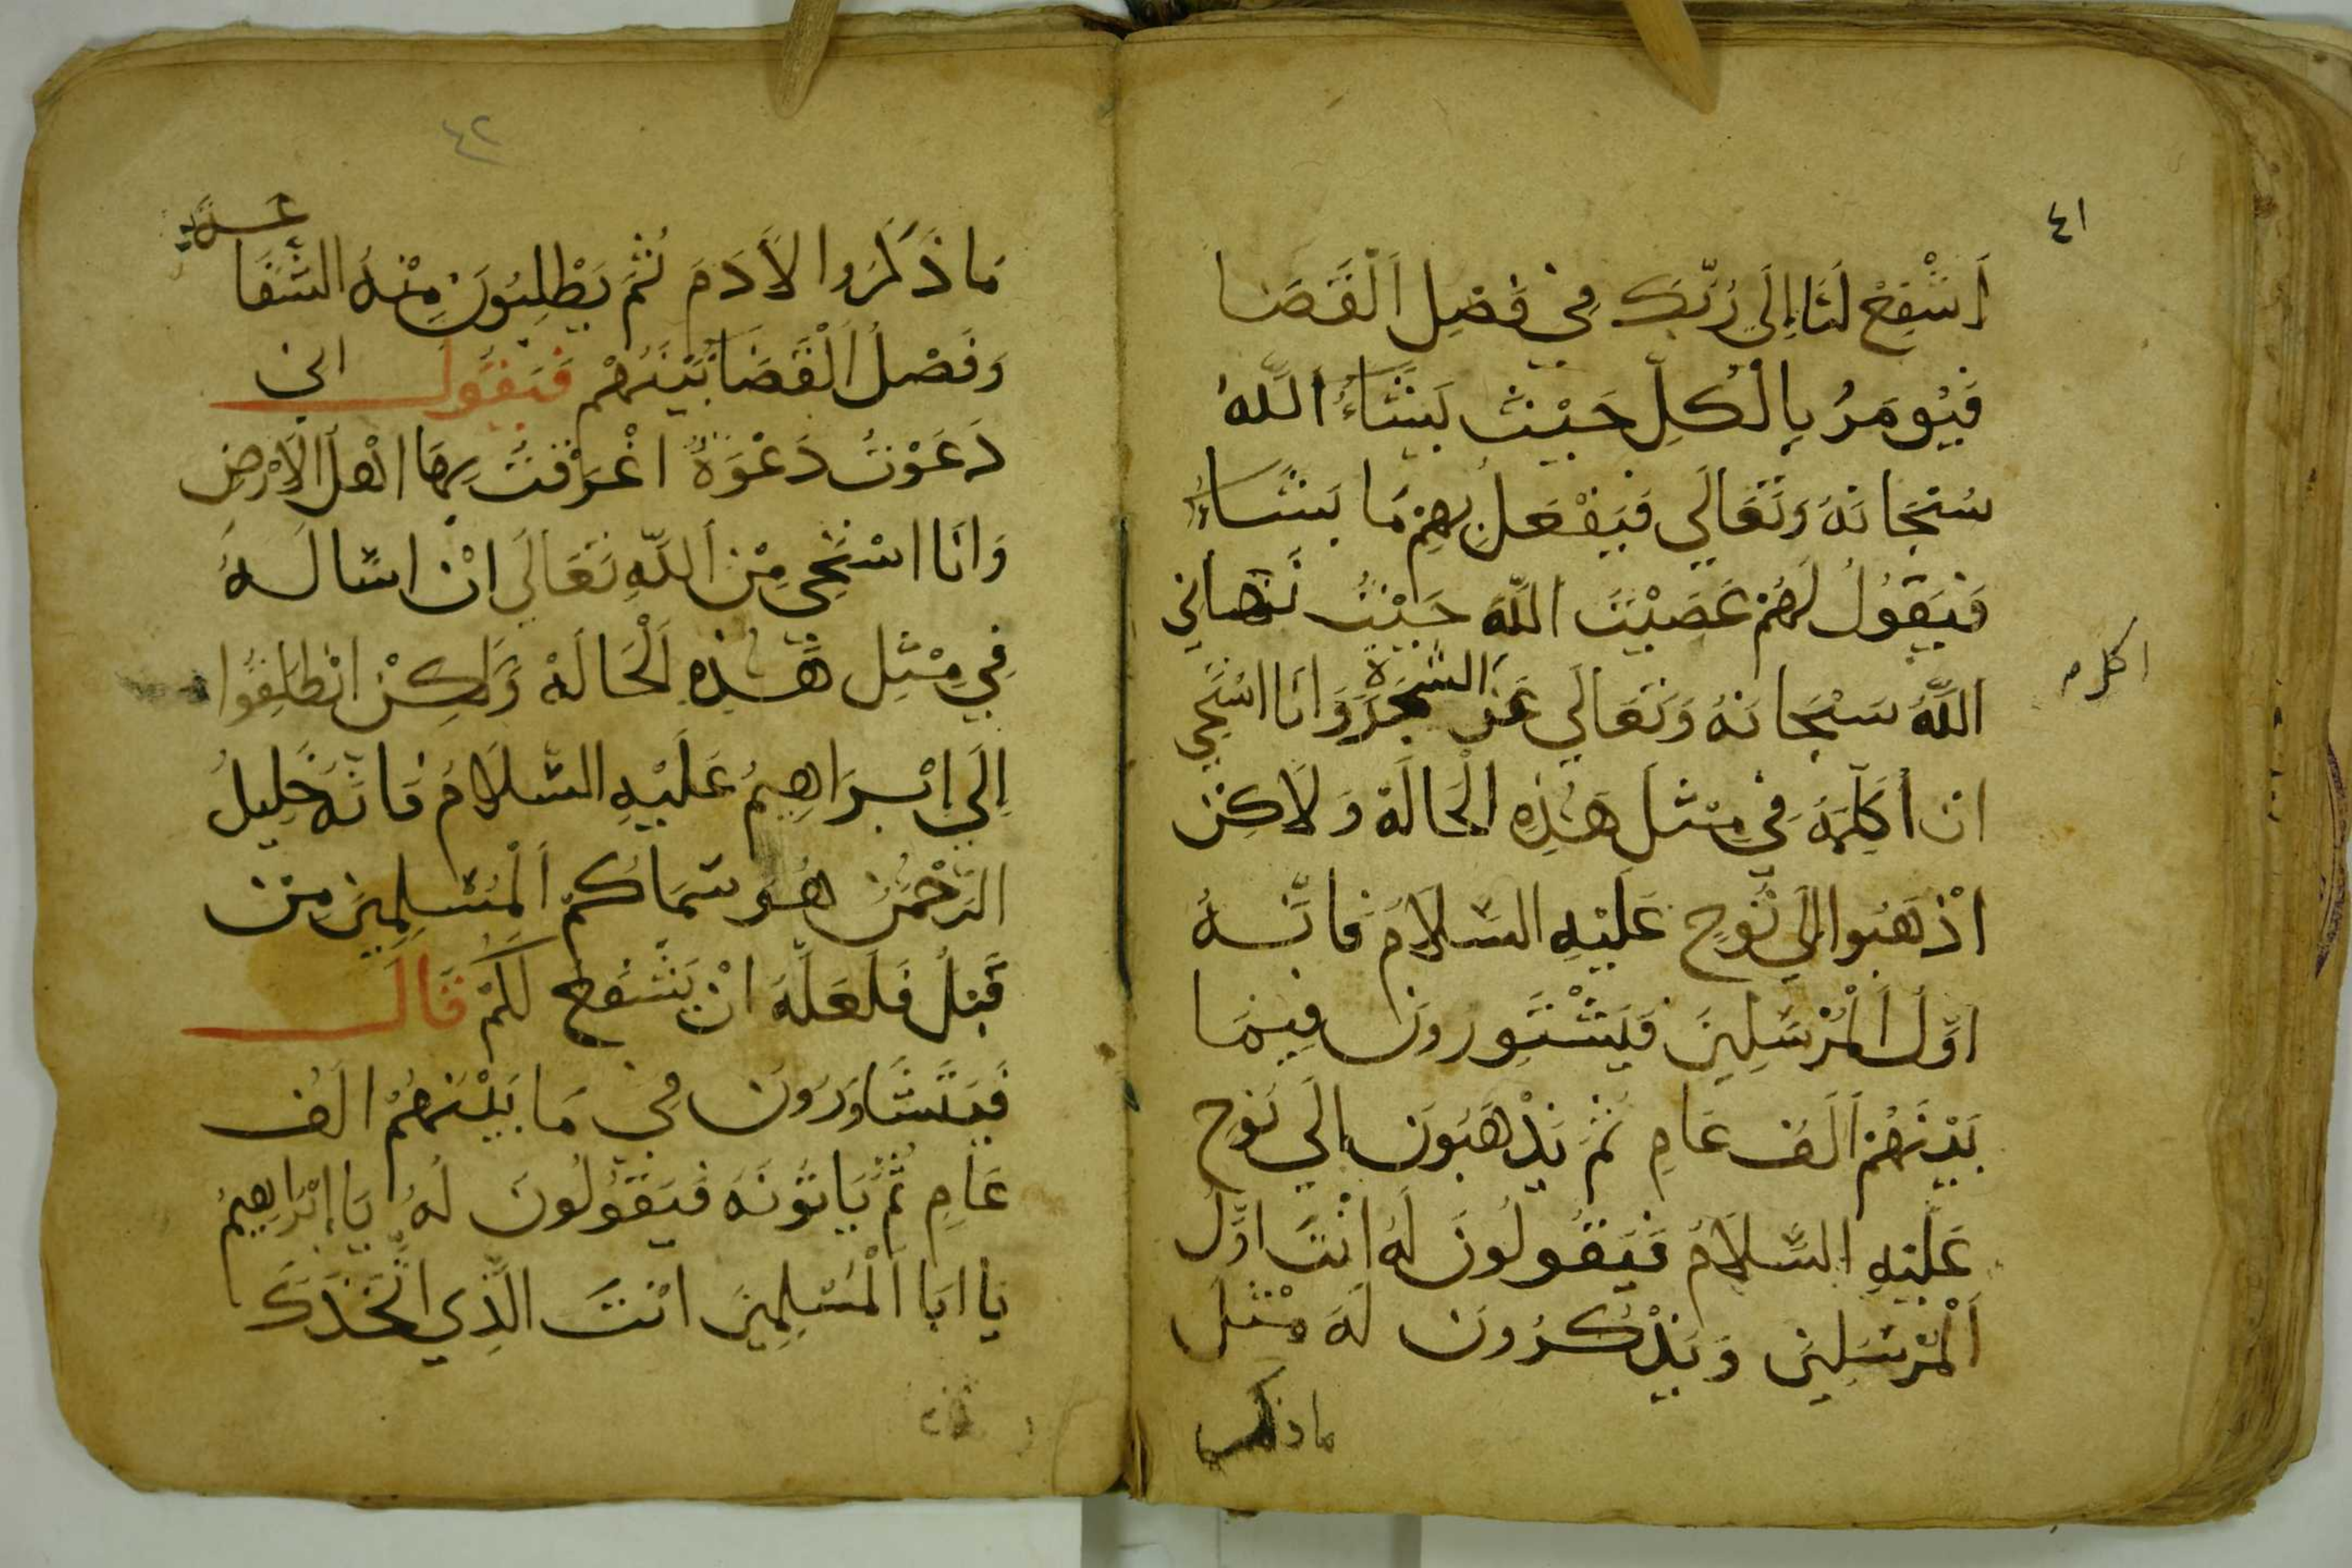 ٤١
اَشْفِعْ لَنَا اِلَي رَبِّكَ فِي فَصْلِ اَلْقَضَا
فَيُومَرُ بِالْكُلِّ حَيْثُ يَشَاءُ اللّٰهُ
سُبْحَانَهُ وَتَعَالَي فَيَفْعَلُ بِهِمْ مَا يَشَاءُ
فَيَقُولُ لَهُمْ عَصَيْتُ اللّٰهَ حَيْثُ نَهَانِي
اللّٰهُ سُبْحَانَهُ وَتَعَالَي عَنْ الشَّجَرَة وَاَنَا اسْتَحِي
اكلم
ان اُكَلِّمَهُ فِي مِثْلِ هَذِهِ الْحَالَةْ وَلَاكِنْ
اذْهَبُوا اِلَي نُوحٍ عَلَيْهِ السَّلَامُ فَاِنَّهُ
اَوَّلُ الْمُرْسَلِينَ فَيَشْتَوِرُونَ فِيمَا
بَيْنَهُمْ اَلَفُ عَامٍ ثُمَّ يَذْهَبُونَ اِلَي نُوحٍ
عَلَيْهِ السَّلَامُ فَيَقُولُونَ لَهُ اَنْتَ اَوَّلُ
اَلْمُرْسَلِينَ وَيَذْكُرُونَ لَهُ مِثْلَ
ماذكر
٤٢
مَا ذَكَرُوا لاَدَمَ ثُمَّ يَطْلِبُونَ مِنْهُ الشَّفَاعـة
وَفَصْلُ اَلْقَضَا بَيْنَهُمْ فَيَقُولُ اني
دَعَوْتُ دَعْوَةً اغْرَقْتُ بِهَا اهْلَ الْاَرْضِ
وَاَنَا اسْتَحِي مِنْ اللّٰهِ تَعَالَي انْ اسْالَهُ
فِي مِثْلِ هَذِهِ اَلْحَالَةْ وَلَكِنْ انْطَلِقُوا
اِلَي اِبْرَاهِيمُ عَلَيْهِ السَّلَامُ فَانَّهُ خَلِيلُ
الرَّحْمَنُ هُوَ سَمَاكُمْ اَلْمُسْلِمِينَ مِنْ
قَبْلُ فَلَعَلَّهُ انْ يَشْفَعُ لَكُمْ قَالَ
فَيَتَشَاوَرُونَ فِي مَا بَيْنَهُمْ اَلَفُ
عَامٍ ثُمَّ يَاتُونَهُ فَيَقُولُونَ لَهُ يَا اِبْرَاهِيمُ
يَا اَبَا الْمُسْلِمِينَ انْتَ الَّذِي اتَّخَذَكَ